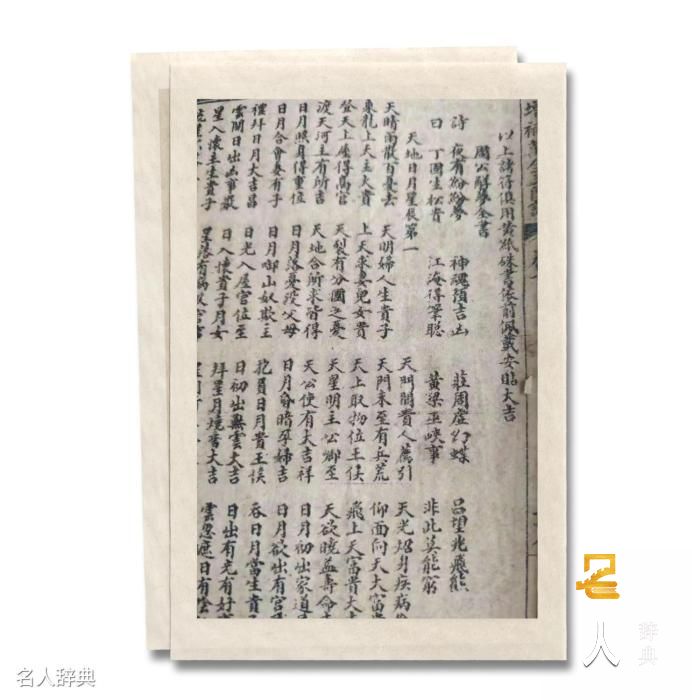 以上諸符俱用黃紙硃書依前佩戴安臨大吉
周公解夢全書
詩 夜有紛紛夢 神魂預吉凶 莊周虛幻蝶 呂望兆飛熊
曰 丁固生松貴 江海得筆聰 黃梁巫峽事 非此莫能窮
天地日月星辰第一
天門開貴人薦引 天光炤身疾病
天晴雨散百憂去 天明婦人生貴子 天門赤至有兵荒 仰面向天大富貴
乘龍上天主大貴 上天求妻兒女貴 天上取物位王侯 飛上天富貴大
登天上屋得高官 天裂有分國之憂 天星明主公卿至 天欲曉益壽命
渡天河主有所吉 天地合所求皆得 天公使有大吉祥 日月初出家道
日月照身得重位 日月落憂沒父母 日月昏暗孕婦吉 日月欲出有官
日月合會妻有子 日月啣山奴欺主 抱負日月貴王侯 吞日月當生貴子
禮拜日月大吉昌 日光入屋官位至 日初出無雲大吉 日出有光有好
雲開日出凶事散 日入懷貴子月女 拜星月燒香大吉 雲忽遮日有陰
星入懷主生貴子 星落有病及官
名人辞典
名人
辞典